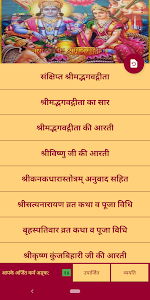 संक्षिप्त श्रीमद्भगवद्गीता
श्रीमद्भगवद्गीता का सार
श्रीमद्भगवद्गीता की आरती
श्रीविष्णु जी की आरती
श्रीकनकधारास्तोत्रम् अनुवाद सहित
श्रीसत्यनारायण व्रत कथा व पूजा विधि
बृहस्पतिवार व्रत कथा व पूजा विधि
श्रीकृष्ण कुंजबिहारी जी की आरती
आपके अर्जित कर्म अङ्क: